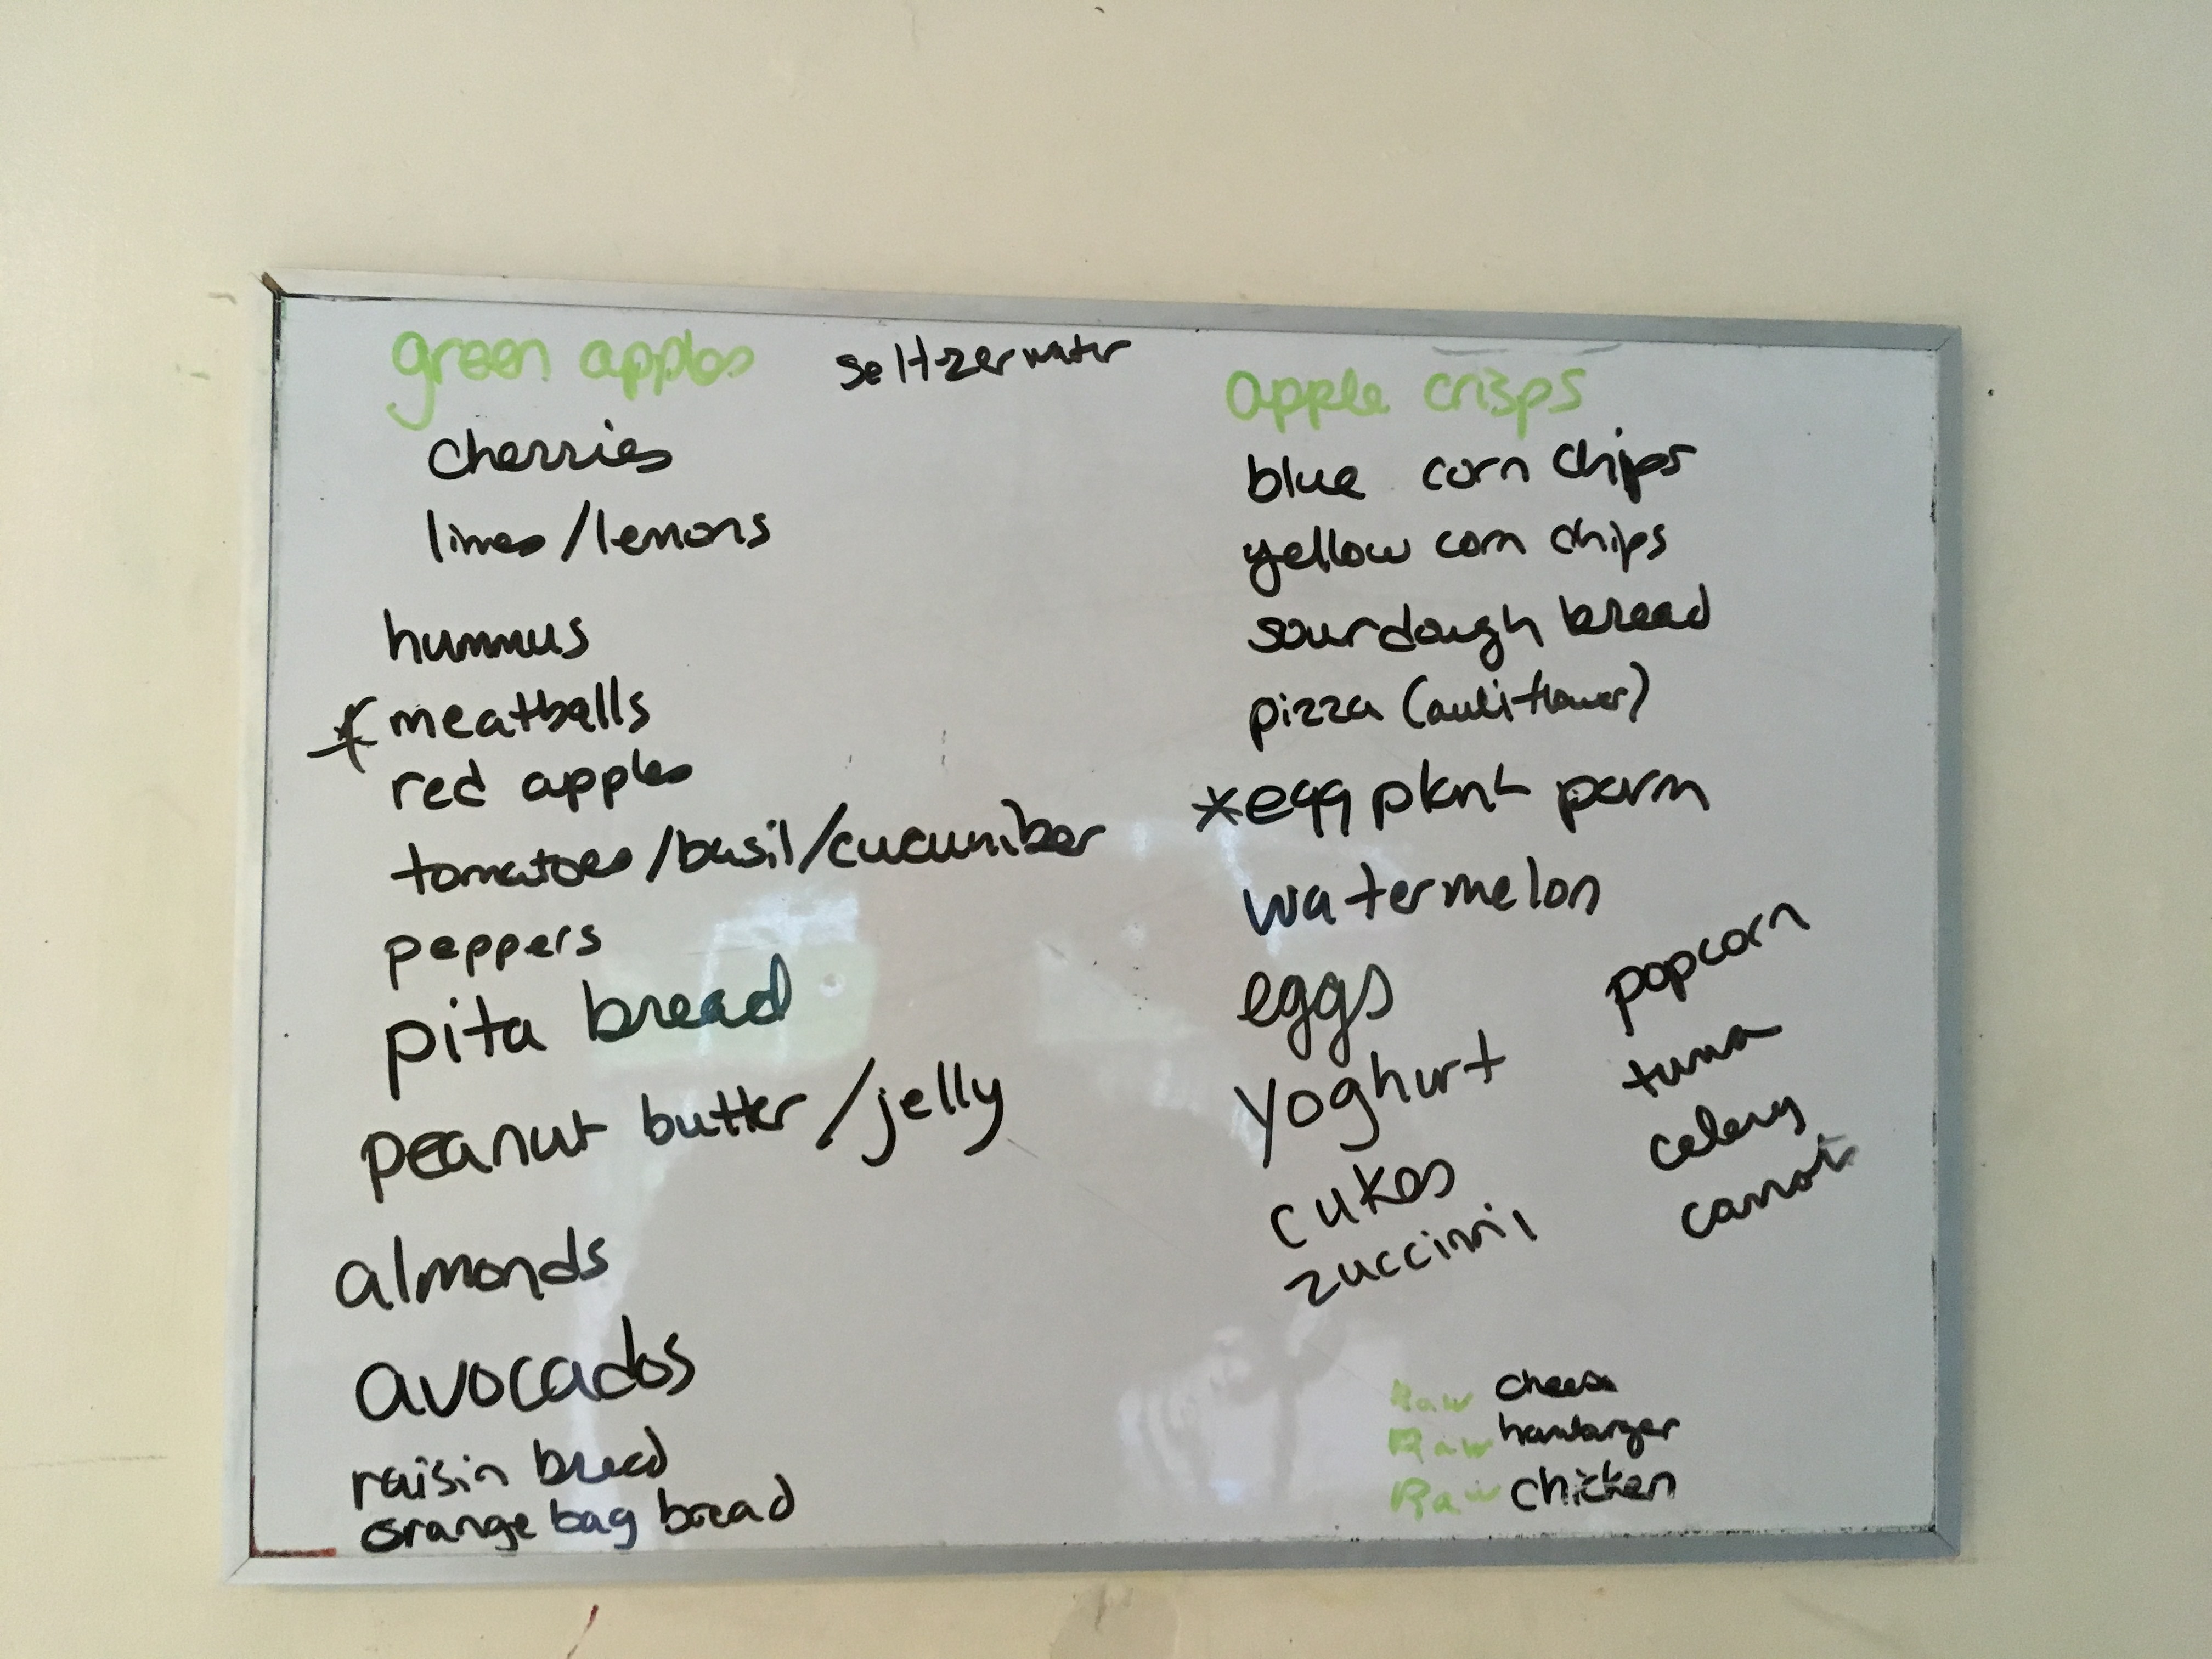 green apples
seltzer water
cherries
limes/lemons
hummus
* meatballs
red apples
tomatoes/basil/cucumber
peppers
pita bread
peanut butter/jelly
almonds
avocados
raisin bread
orange bag bread
apple crisps
blue corn chips
yellow corn chips
sourdough bread
pizza (cauliflower)
*egg plant parm
watermelon
eggs
yoghurt
cukes
zuccinni
popcorn
tuna
celery
carrot
Raw cheese
Raw hamburger
Raw chicken